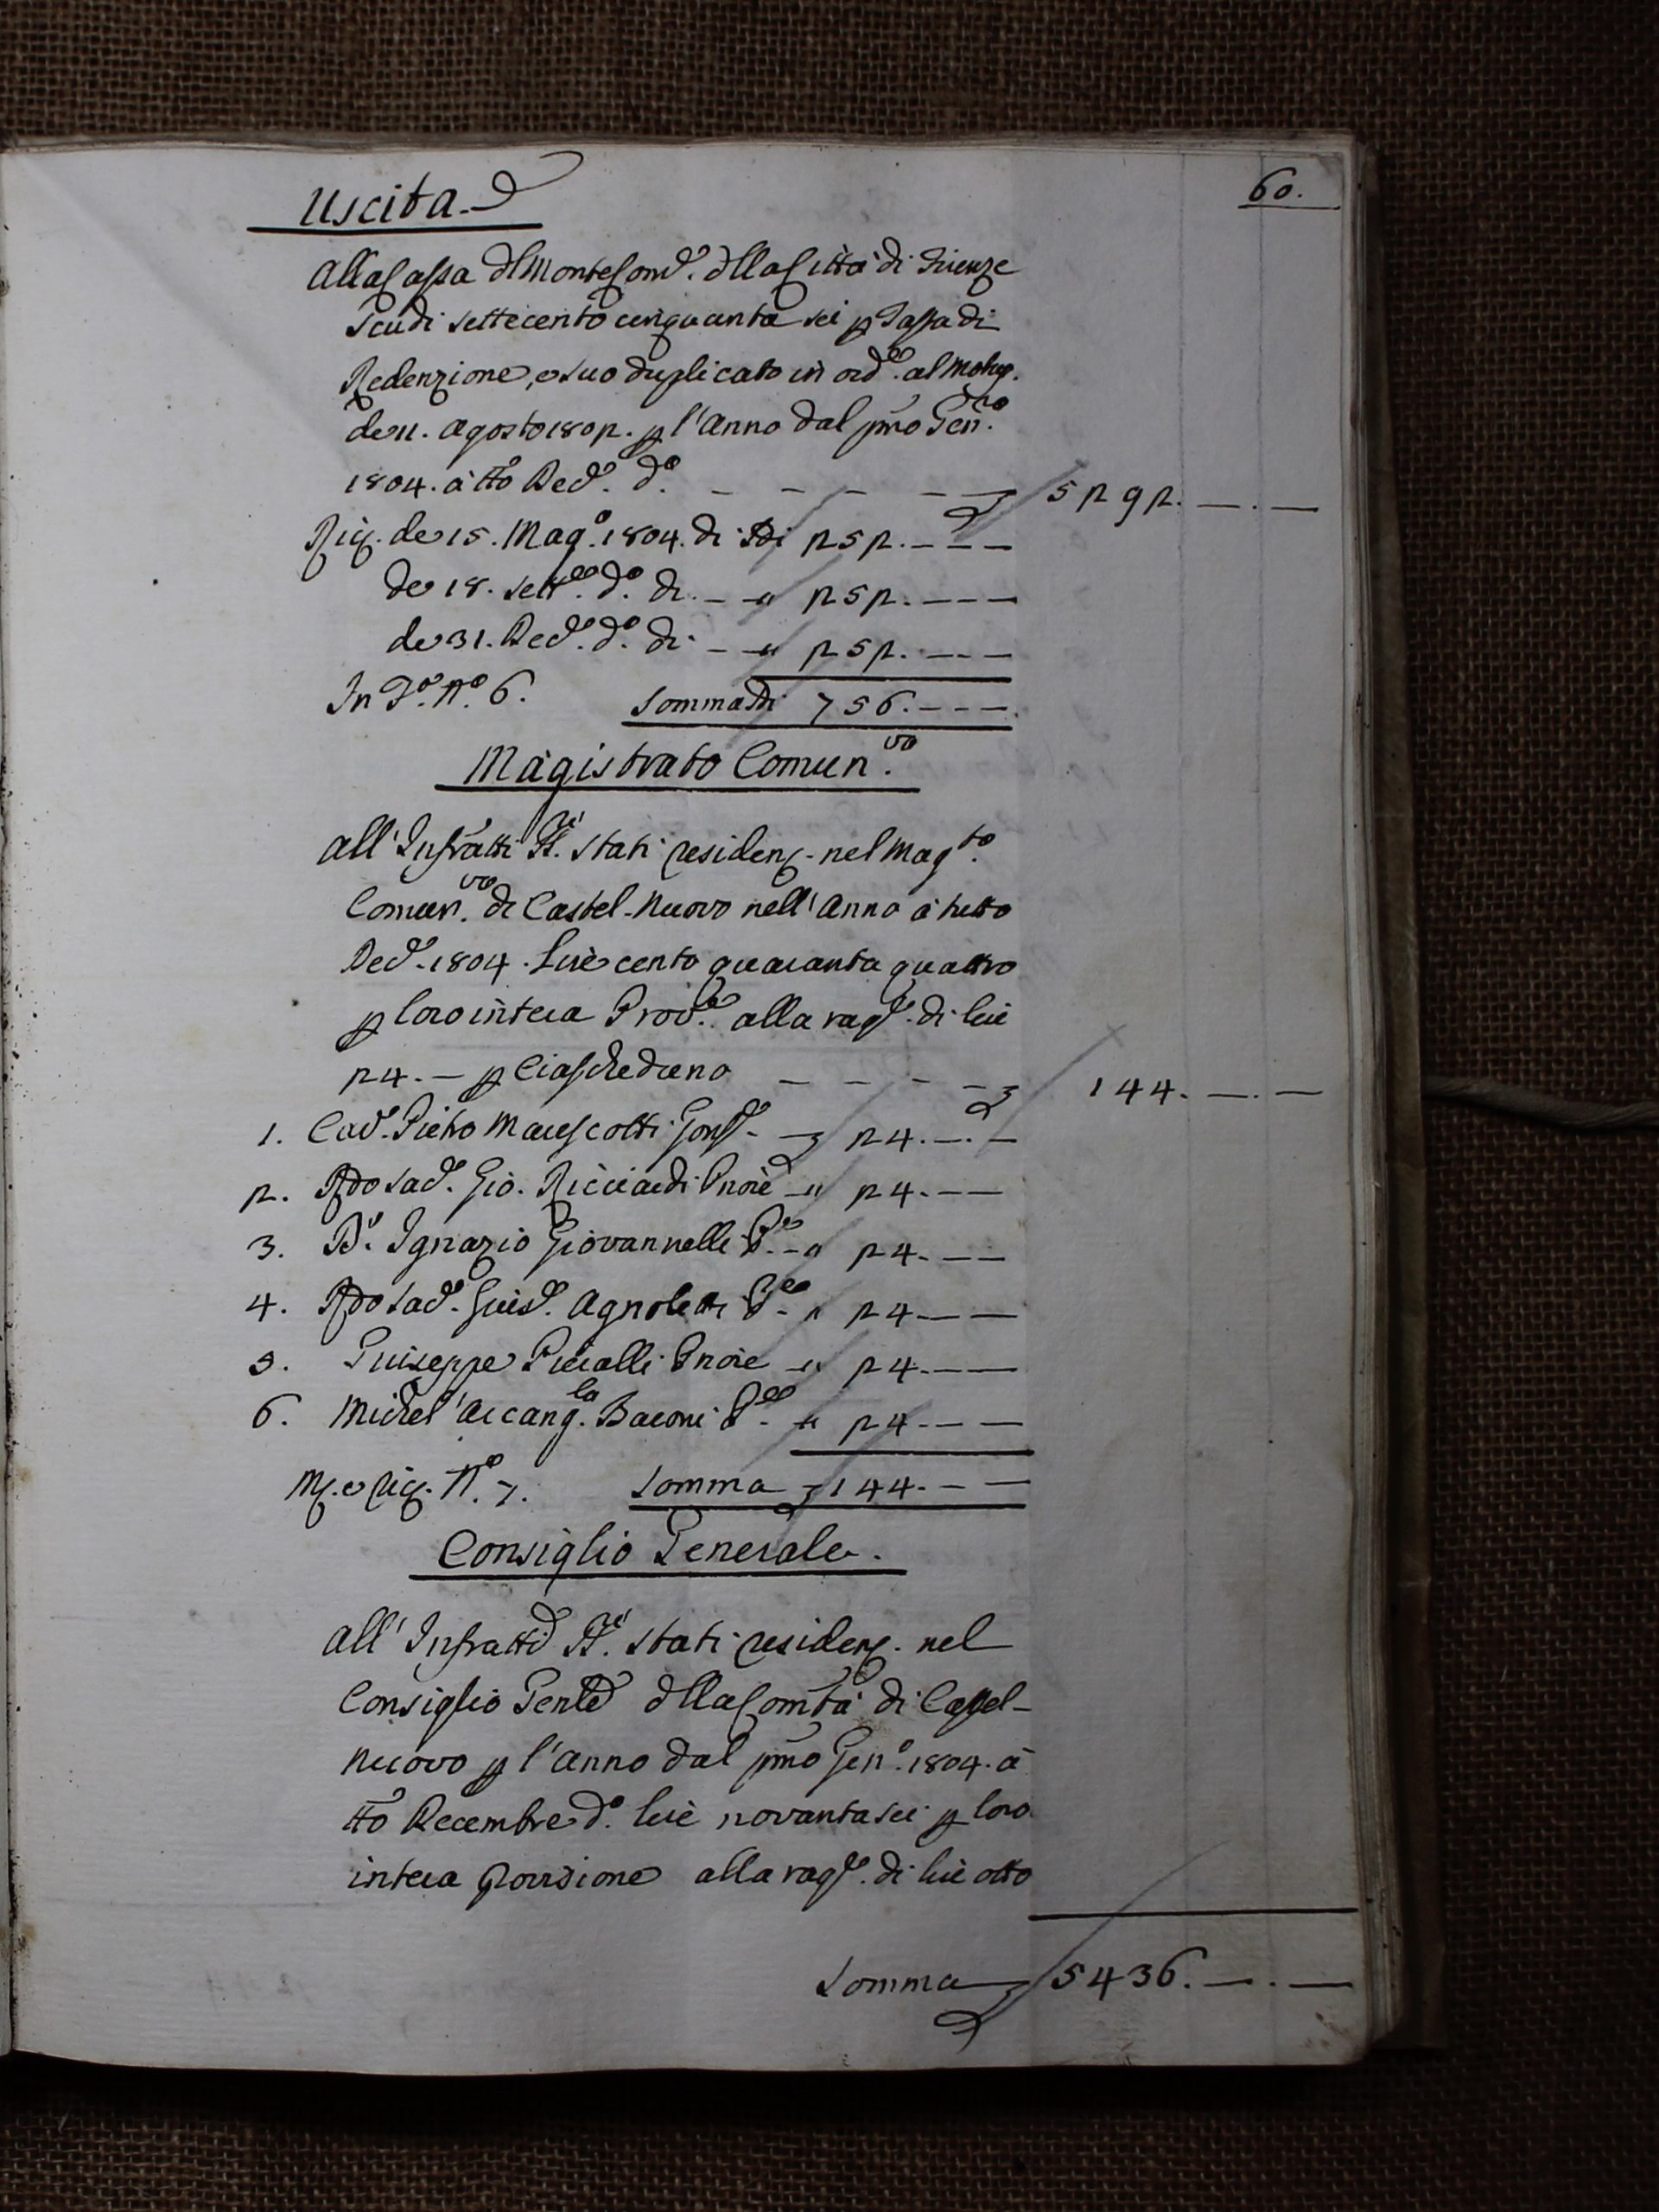 Uscita
60.
Alla Cassa dl Monte Com.e dlla Città di Firenze
Scudi settecento cinquanta sei p Tassa di
Redenzione, e suo duplicato in ord.e al
de 11. Agosto 1802. p l'Anno dal pmo Gen.ro
1804. à tto Dec.e d.o 5292. — . —
Ric. de 15. Mag.o 1804. di Sdi 252. — — —
de 18. Sett.e d.o di — " 252. — — —
de 31. Dec.e d.o di — " 252. — — —
In F.o N.o 6. Somma Sdi 756. — — —
Magistrato Comun.vo
All' Infratti SS.ri stati resident. nel Mag.to
Comun.vo di Castel-Nuovo nell' Anno à tutto
Dec.e 1804. Lire cento quaranta quattro
p loro intera Prov.e alla rag.e di lire
24. — p Ciascheduno 144. — . —
1. Cav.e Pietro Marescotti Gonf.e — 24. — . —
2. Rdo Sac.e Gio. Ricciardi Priore — " 24. — —
3. D.r Ignazio Giovannelli P.e — " 24. — —
4. Rdo Sac.e Gius.e Agnoletti P.e — " 24. — —
5. Giuseppe Pieralli Priore — " 24. — —
6. Michel' Arcang.lo Baroni P.e — " 24. — —
M. e ric. N.o 7. Somma 144. — —
Consiglio Generale.
All' Infratti SS.ri stati resident. nel
Consiglio Genle dlla Comtà di Castel-
nuovo p l'Anno dal pmo Gen.o 1804. à
tto Decembre d.o lire novantasei p loro
intera Provisione alla rag.e di lire otto
Somma 5436. — . —